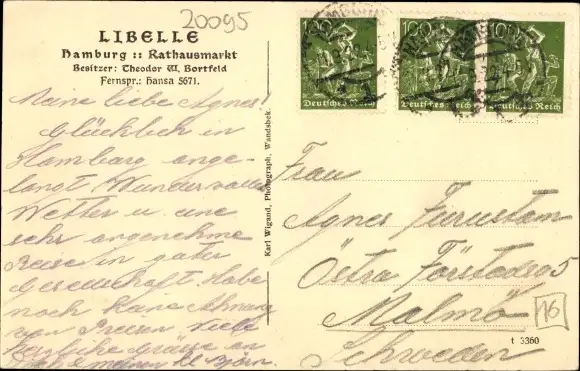 20095
LIBELLE
Hamburg :: Rathausmarkt
Besitzer: Theodor W. Bortfeld
Fernspr.: Hansa 5671.
Meine liebe Agnes!
Glücklich in
Hamburg ange-
langt. Wundervolles
Wetter u. eine
sehr angenehme
Reise in guter
Gesellschaft. Habe
noch keine Ahnung
von Preisen. Viele
herzliche Grüsse an
Björn.
Karl Wigand, Photograph, Wandsbek.
100 100 100
Deutsches Reich Deutsches Reich Deutsches Reich
Frau
Agnes
Östra
Malmö
Schweden
16
t 3360